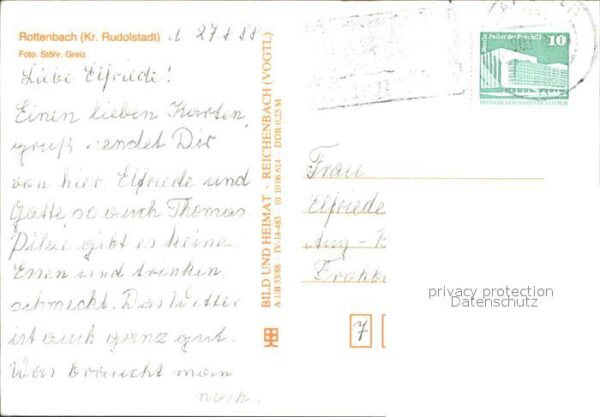 Rottenbach (Kr. Rudolstadt) d. 27.8.88
Foto: Stöhr, Greiz
Liebe Elfriede!
Einen lieben Karten
gruß sendet Dir
von hier Elfriede und
Gatte, so auch Thomas
Pilze gibt es keine.
Essen und trinken
schmeckt. Das Wetter
ist auch ganz gut.
Was braucht man
noch.
BILD UND HEIMAT · REICHENBACH (VOGTL)
A 1/B 53/88 · IV-14-483 01 10 06 614 DDR 0,25 M
Berlin Palast der Republik
10
Frau
Elfriede
privacy protection
Datenschutz
7